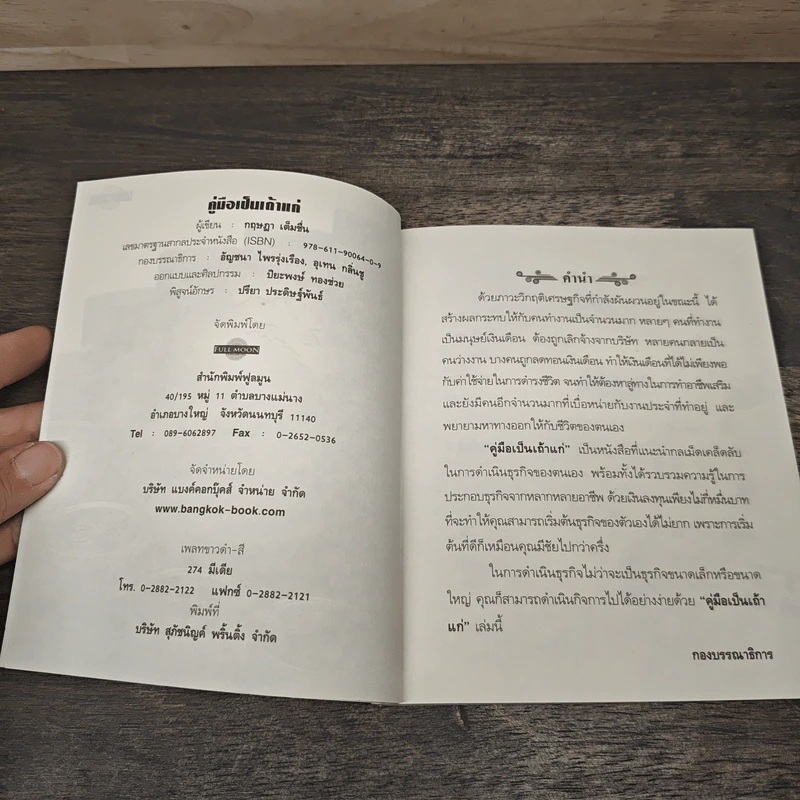 คู่มือเป็นเถ้าแก่
ผู้เขียน : กฤษฎา เต็มชื่น
เลขมาตรฐานสากลประจำหนังสือ (ISBN) : 978-611-90064-0-9
กองบรรณาธิการ : อัญชนา ไพรรุ่งเรือง, อุเทน กลิ่นชู
ออกแบบและศิลปกรรม : ปิยะพงษ์ ทองช่วย
พิสูจน์อักษร : ปรียา ประดิษฐ์พันธ์
จัดพิมพ์โดย
FULL MOON
สำนักพิมพ์ฟูลมูน
40/195 หมู่ 11 ตำบลบางแม่นาง
อำเภอบางใหญ่ จังหวัดนนทบุรี 11140
Tel : 089-6062897 Fax : 0-2652-0536
จัดจำหน่ายโดย
บริษัท แบงค์คอกบุ๊คส์ จำหน่าย จำกัด
www.bangkok-book.com
เพลทขาวดำ-สี
274 มีเดีย
โทร. 0-2882-2122 แฟกซ์ 0-2882-2121
พิมพ์ที่
บริษัท สุภัชนิญค์ พริ้นติ้ง จำกัด
คำนำ
ด้วยภาวะวิกฤติเศรษฐกิจที่กำลังผันผวนอยู่ในขณะนี้ ได้
สร้างผลกระทบให้กับคนทำงานเป็นจำนวนมาก หลายๆ คนที่ทำงาน
เป็นมนุษย์เงินเดือน ต้องถูกเลิกจ้างจากบริษัท หลายคนกลายเป็น
คนว่างงาน บางคนถูกลดทอนเงินเดือน ทำให้เงินเดือนที่ได้ไม่เพียงพอ
กับค่าใช้จ่ายในการดำรงชีวิต จนทำให้ต้องหาลู่ทางในการทำอาชีพเสริม
และยังมีคนอีกจำนวนมากที่เบื่อหน่ายกับงานประจำที่ทำอยู่ และ
พยายามหาทางออกให้กับชีวิตของตนเอง
“คู่มือเป็นเถ้าแก่” เป็นหนังสือที่แนะนำกลเม็ดเคล็ดลับ
ในการดำเนินธุรกิจของตนเอง พร้อมทั้งได้รวบรวมความรู้ในการ
ประกอบธุรกิจจากหลากหลายอาชีพ ด้วยเงินลงทุนเพียงไม่กี่หมื่นบาท
ที่จะทำให้คุณสามารถเริ่มต้นธุรกิจของตัวเองได้ไม่ยาก เพราะการเริ่ม
ต้นที่ดีก็เหมือนคุณมีชัยไปกว่าครึ่ง
ในการดำเนินธุรกิจไม่ว่าจะเป็นธุรกิจขนาดเล็กหรือขนาด
ใหญ่ คุณก็สามารถดำเนินกิจการไปได้อย่างง่ายด้วย “คู่มือเป็นเถ้า
แก่” เล่มนี้
กองบรรณาธิการ